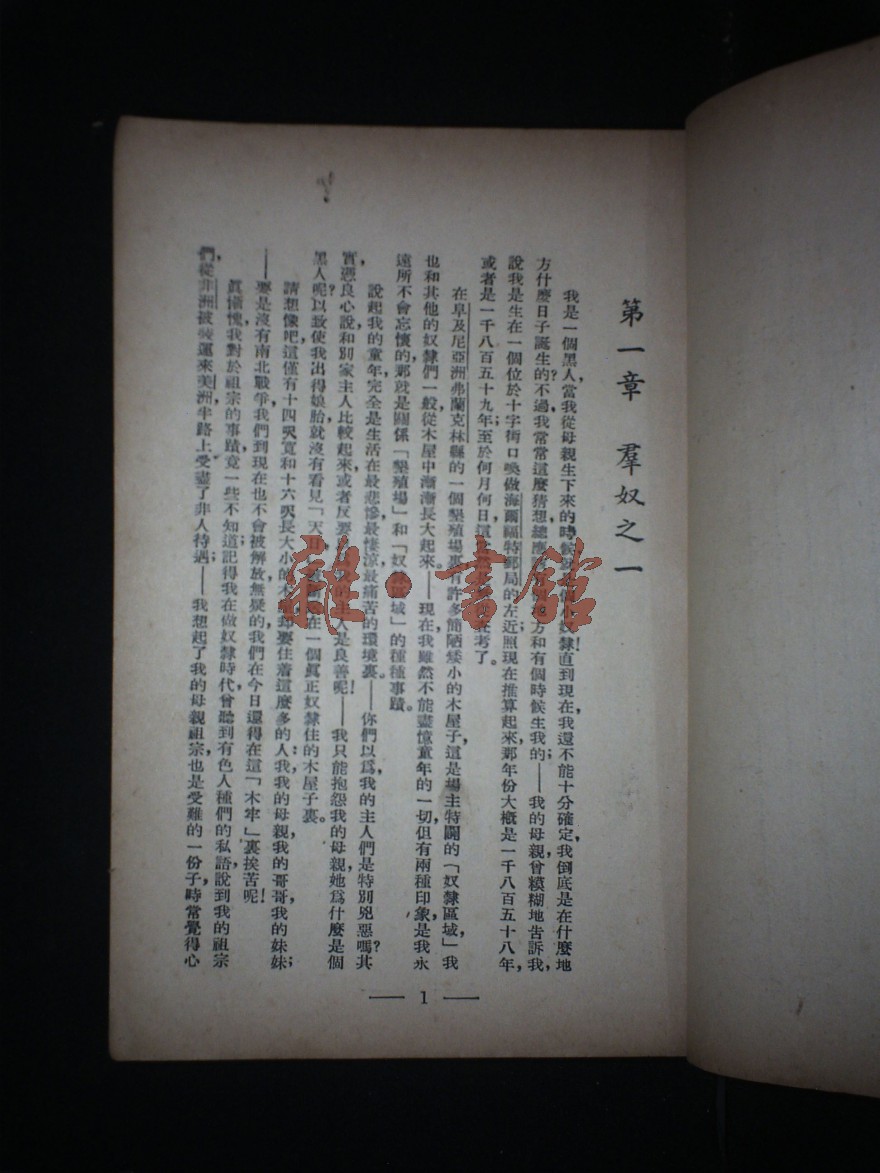 第一章　羣奴之一
我是一個黑人，當我從母親生下來的時候奴隸！直到現在，我還不能十分確定，我倒底是在什麼地
方什麼日子誕生的？不過我常常這麼猜想，總應方和有個時候生我的——我的母親曾糢糊地告訴我，
說我是生在一個位於十字街口喚做海爾福特郵局的左近；照現在推算起來，那年份大概是一千八百五十八年，
或者是一千八百五十九年，至於何月何日，考了。
在早及尼亞洲弗蘭克林縣的一個墾殖場裏，有許多簡陋矮小的木屋子，這是場主特闢的「奴隸區域」，我
也和其他的奴隸們一般，從木屋中漸漸長大起來。——現在我雖然不能盡憶童年的一切，但有兩種印象是我永
遠所不會忘懷的，那就是關係「墾殖場」和「奴隸區域」的種種事蹟。
說起我的童年，完全是生活在最悲慘最悽涼最痛苦的環境裏。——你們以爲我的主人們是特別兇惡嗎？其
實，憑良心說，和別家主人比較起來，或者反要主人是良善呢！——我只能抱怨我的母親，她爲什麼是個
黑人呢？以致使我出得娘胎，就沒有看見「天在一個眞正奴隸住的木屋子裏。
請想像吧，這僅有十四呎寬和十六呎長大小的木却要住着這麼多的人：我，我的母親，我的哥哥，我的妹妹；
——要是沒有南北戰爭，我們到現在也不會被解放，無疑的，我們在今日還得在這「木牢」裏挨苦呢！
眞慚愧，我對於祖宗的事蹟，竟一些不知道；記得我在做奴隸時代，曾聽到有色人種們的私語，說到我的祖宗
們，從非洲被裝運來美洲，半路上受盡了非人待遇——我想起了我的母親祖宗，也是受難的一份子，時常覺得心
— 1 —
雜·書館